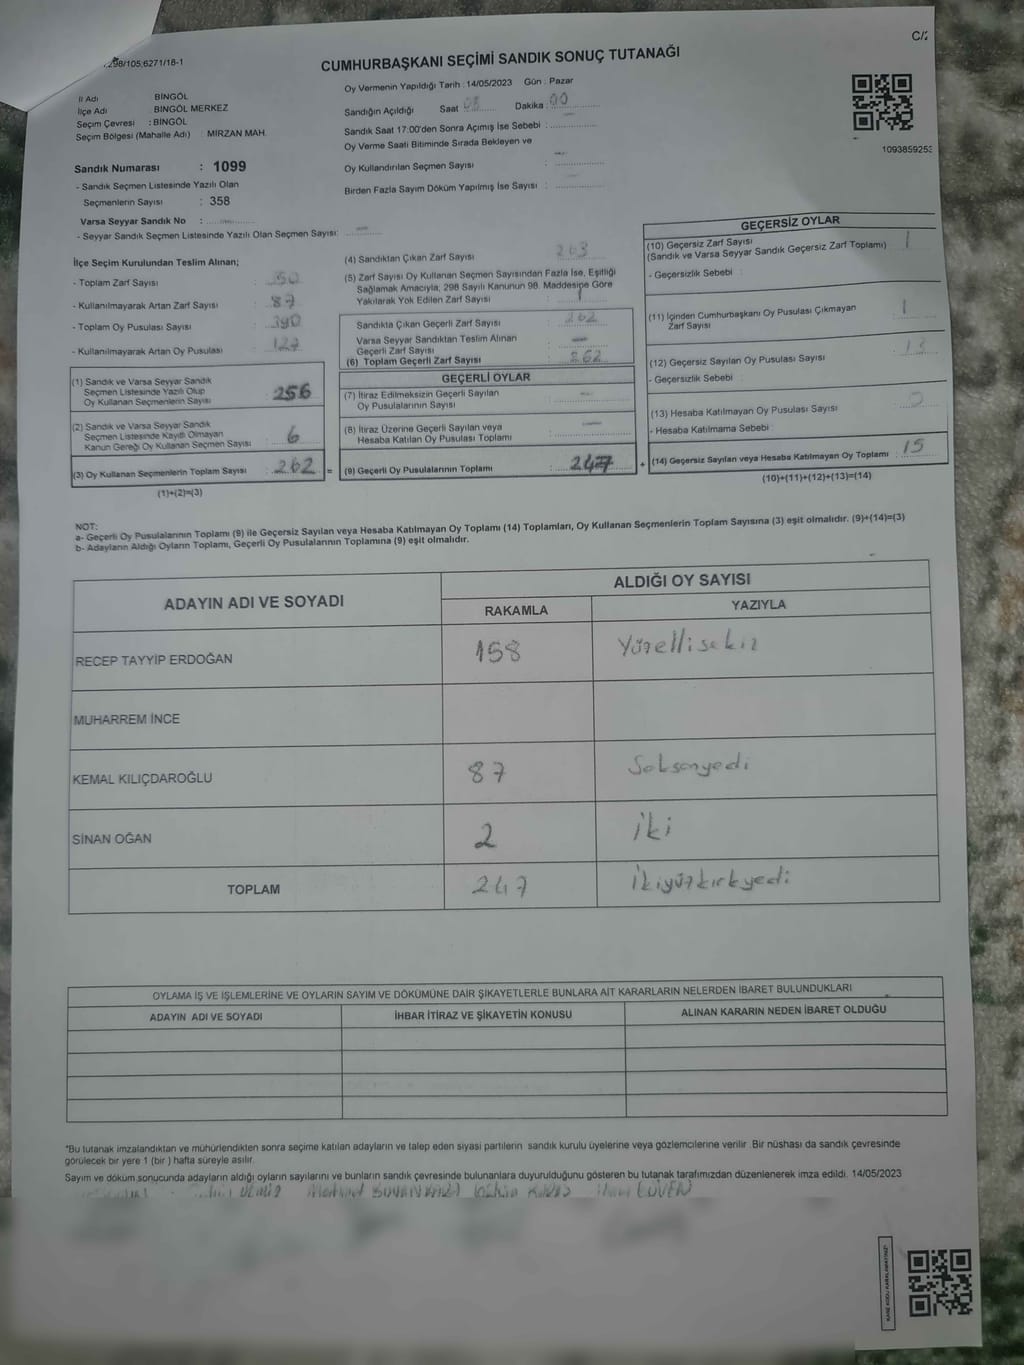 .298/105,6271/18-1
C/2
CUMHURBAŞKANI SEÇİMİ SANDIK SONUÇ TUTANAĞI
İl Adı BİNGÖL
İlçe Adı : BİNGÖL MERKEZ
Seçim Çevresi : BİNGÖL
Seçim Bölgesi (Mahalle Adı) : MİRZAN MAH.
Oy Vermenin Yapıldığı Tarih : 14/05/2023 Gün : Pazar
Sandığın Açıldığı Saat 08 Dakika 00
Sandık Saat 17:00'den Sonra Açımış İse Sebebi :
Oy Verme Saati Bitiminde Sırada Bekleyen ve
Oy Kullandırılan Seçmen Sayısı : —
Birden Fazla Sayım Döküm Yapılmış İse Sayısı : —
1093859253
Sandık Numarası : 1099
- Sandık Seçmen Listesinde Yazılı Olan
Seçmenlerin Sayısı : 358
Varsa Seyyar Sandık No :
- Seyyar Sandık Seçmen Listesinde Yazılı Olan Seçmen Sayısı: —
İlçe Seçim Kurulundan Teslim Alınan;
- Toplam Zarf Sayısı : 350
- Kullanılmayarak Artan Zarf Sayısı : 87
- Toplam Oy Pusulası Sayısı : 390
- Kullanılmayarak Artan Oy Pusulası : 127
(1) Sandık ve Varsa Seyyar Sandık
Seçmen Listesinde Yazılı Olup
Oy Kullanan Seçmenlerin Sayısı : 256
(2) Sandık ve Varsa Seyyar Sandık
Seçmen Listesinde Kayıtlı Olmayan
Kanun Gereği Oy Kullanan Seçmen Sayısı : 6
(3) Oy Kullanan Seçmenlerin Toplam Sayısı : 262 =
(1)+(2)=(3)
(4) Sandıktan Çıkan Zarf Sayısı : 263
(5) Zarf Sayısı Oy Kullanan Seçmen Sayısından Fazla İse, Eşitliği
Sağlamak Amacıyla, 298 Sayılı Kanunun 98. Maddesine Göre
Yakılarak Yok Edilen Zarf Sayısı : 1
Sandıkta Çıkan Geçerli Zarf Sayısı : 262
Varsa Seyyar Sandıktan Teslim Alınan
Geçerli Zarf Sayısı : —
(6) Toplam Geçerli Zarf Sayısı : 262
GEÇERLİ OYLAR
(7) İtiraz Edilmeksizin Geçerli Sayılan
Oy Pusulalarının Sayısı : —
(8) İtiraz Üzerine Geçerli Sayılan veya
Hesaba Katılan Oy Pusulası Toplamı : —
(9) Geçerli Oy Pusulalarının Toplamı : 247 +
GEÇERSİZ OYLAR
(10) Geçersiz Zarf Sayısı
(Sandık ve Varsa Seyyar Sandık Geçersiz Zarf Toplamı) : 1
- Geçersizlik Sebebi :
(11) İçinden Cumhurbaşkanı Oy Pusulası Çıkmayan
Zarf Sayısı : 1
(12) Geçersiz Sayılan Oy Pusulası Sayısı : 13
- Geçersizlik Sebebi :
(13) Hesaba Katılmayan Oy Pusulası Sayısı : 0
- Hesaba Katılmama Sebebi :
(14) Geçersiz Sayılan veya Hesaba Katılmayan Oy Toplamı : 15
(10)+(11)+(12)+(13)=(14)
NOT:
a- Geçerli Oy Pusulalarının Toplamı (9) ile Geçersiz Sayılan veya Hesaba Katılmayan Oy Toplamı (14) Toplamları, Oy Kullanan Seçmenlerin Toplam Sayısına (3) eşit olmalıdır. (9)+(14)=(3)
b- Adayların Aldığı Oyların Toplamı, Geçerli Oy Pusulalarının Toplamına (9) eşit olmalıdır.
ADAYIN ADI VE SOYADI ALDIĞI OY SAYISI
RAKAMLA YAZIYLA
RECEP TAYYİP ERDOĞAN 158 Yüzellisekiz
MUHARREM İNCE
KEMAL KILIÇDAROĞLU 87 Seksenyedi
SİNAN OĞAN 2 İki
TOPLAM 247 İkiyüzkırkyedi
OYLAMA İŞ VE İŞLEMLERİNE VE OYLARIN SAYIM VE DÖKÜMÜNE DAİR ŞİKAYETLERLE BUNLARA AİT KARARLARIN NELERDEN İBARET BULUNDUKLARI
ADAYIN ADI VE SOYADI İHBAR İTİRAZ VE ŞİKAYETİN KONUSU ALINAN KARARIN NEDEN İBARET OLDUĞU
*Bu tutanak imzalandıktan ve mühürlendikten sonra seçime katılan adayların ve talep eden siyasi partilerin sandık kurulu üyelerine veya gözlemcilerine verilir. Bir nüshası da sandık çevresinde
görülecek bir yere 1 (bir ) hafta süreyle asılır.
Sayım ve döküm sonucunda adayların aldığı oyların sayılarını ve bunların sandık çevresinde bulunanlara duyurulduğunu gösteren bu tutanak tarafımızdan düzenlenerek imza edildi. 14/05/2023